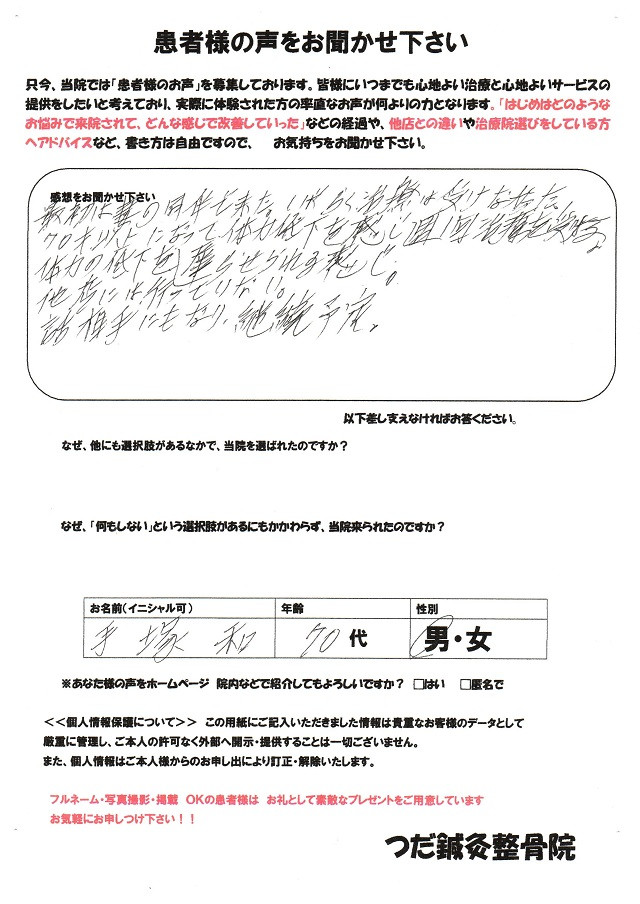 患者様の声をお聞かせ下さい
只今、当院では「患者様のお声」を募集しております。皆様にいつまでも心地よい治療と心地よいサービスの
提供をしたいと考えており、実際に体験された方の率直なお声が何よりの力となります。「はじめはどのような
お悩みで来院されて、どんな感じで改善していった」などの経過や、他店との違いや治療院選びをしている方
へアドバイスなど、書き方は自由ですので、 お気持ちをお聞かせ下さい。
感想をお聞かせ下さい
最初は妻の同伴で来た。しばらく治療は受けなかった
70才以上になって体力低下を感じ週1回治療を
体力の低下を せられる感じ。
他店には行っていない。
話相手にもなり、継続予定。
以下差し支えなければお答ください。
なぜ、他にも選択肢があるなかで、当院を選ばれたのですか？
なぜ、「何もしない」という選択肢があるにもかかわらず、当院来られたのですか？
お名前（イニシャル可） 年齢 性別
手塚 和 70代 男・女
※あなた様の声をホームページ 院内などで紹介してもよろしいですか？ □はい □匿名で
＜＜個人情報保護について＞＞ この用紙にご記入いただきました情報は貴重なお客様のデータとして
厳重に管理し、ご本人の許可なく外部へ開示・提供することは一切ございません。
また、個人情報はご本人様からのお申し出により訂正・解除いたします。
フルネーム・写真撮影・掲載 OKの患者様は お礼として素敵なプレゼントをご用意しています
お気軽にお申しつけ下さい！！
つだ鍼灸整骨院